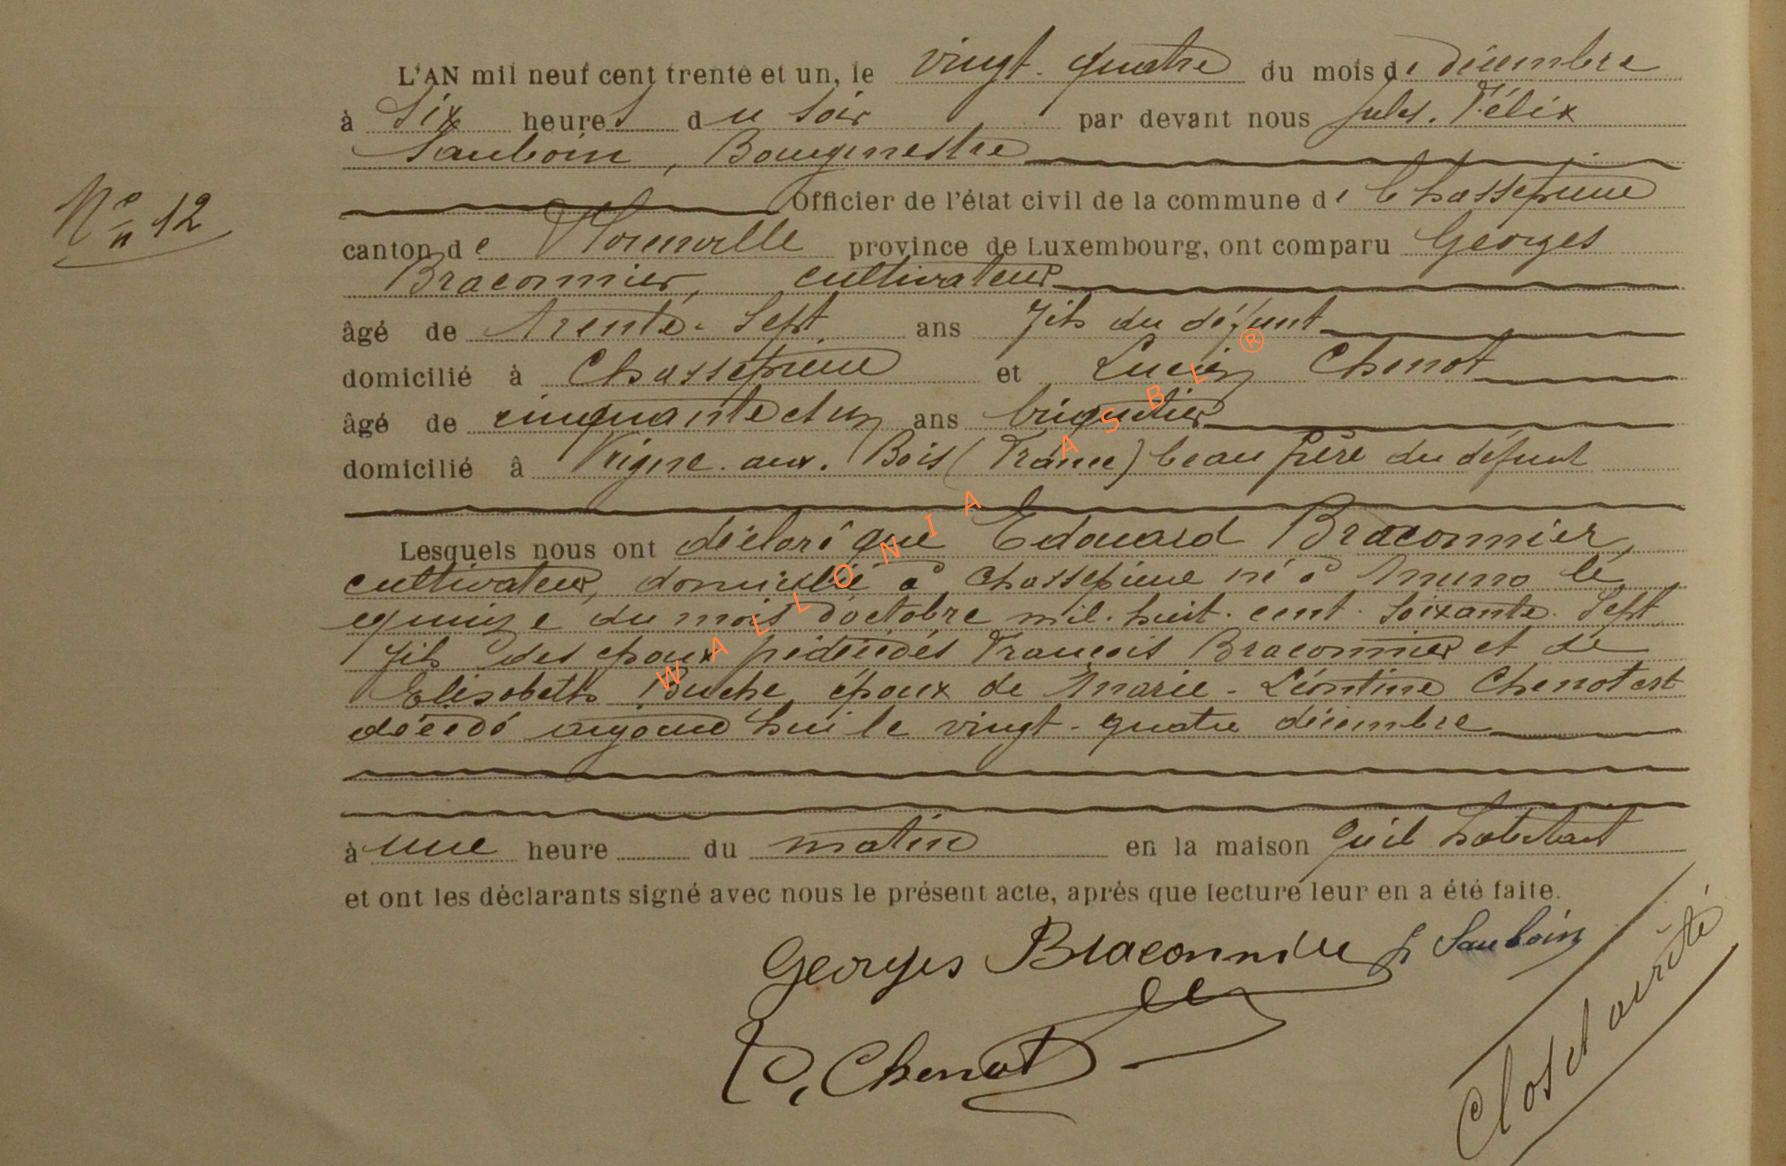 L'AN mil neuf cent trente et un, le vingt-quatre du mois de décembre
à six heures du soir par devant nous Jules-Félix
Sauboin, Bourgmestre
Officier de l'état civil de la commune de Chassepierre
N° 12
canton de Florenville province de Luxembourg, ont comparu Georges
Braconnier, cultivateur
âgé de trente-sept ans fils du défunt
domicilié à Chassepierre et Lucien Chenot
âgé de cinquante et un ans brigadier
domicilié à Vrigne-aux-Bois (France) beau frère du défunt
Lesquels nous ont déclaré que Edouard Braconnier,
cultivateur, domicilié à Chassepierre né à Muno le
quinze du mois d'octobre mil-huit-cent-soixante-sept
fils des époux prédécédés François Braconnier et de
Elisabeth Pouche, époux de Marie-Léontine Chenot est
décédé aujourd'hui le vingt-quatre décembre
à une heure du matin en la maison qu'il habitait
et ont les déclarants signé avec nous le présent acte, après que lecture leur en a été faite.
Georges Braconnier J Sauboin
Chenot
Clos et arrêté
WALLONIA ASBL ®